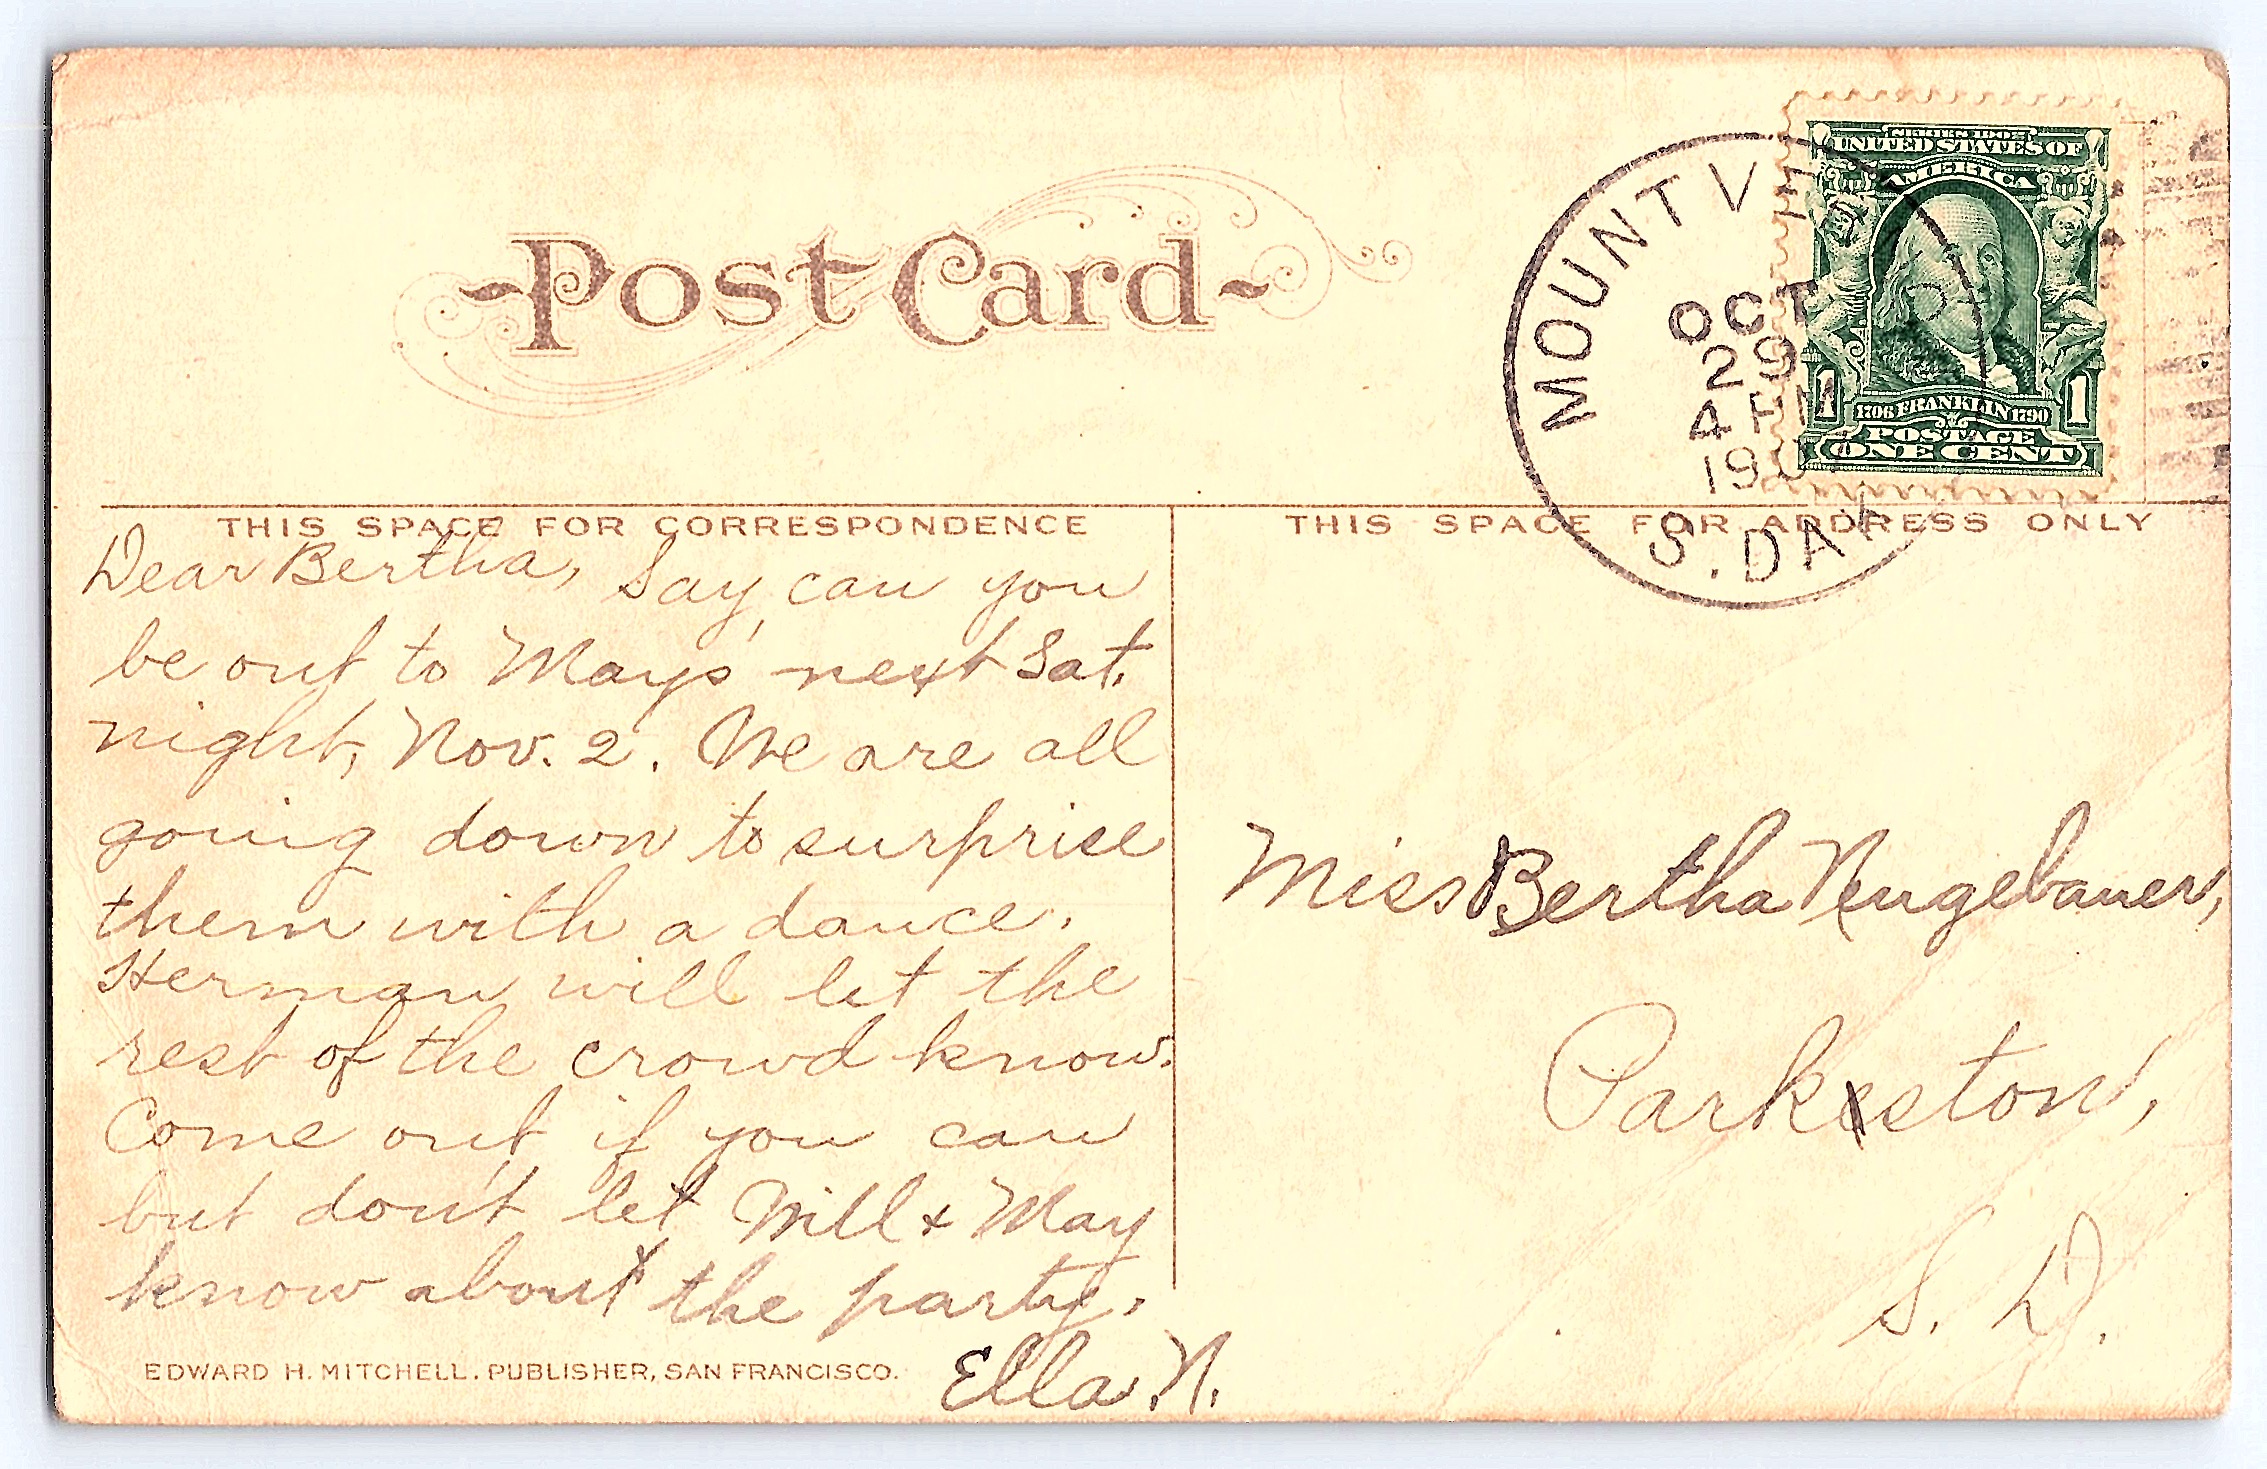 Post Card
MOUNT V
OCT
29
4 PM
19
S. DAK
SERIES 1902
UNITED STATES OF
AMERICA
1 1706 FRANKLIN 1790 1
POSTAGE
ONE CENT
THIS SPACE FOR CORRESPONDENCE
THIS SPACE FOR ADDRESS ONLY
Dear Bertha, Say, can you
be out to May's next Sat.
night, Nov. 2. We are all
going down to surprise
them with a dance.
Herman will let the
rest of the crowd know.
Come out if you can
but don't let Will + May
know about the party.
Ella N.
Miss Bertha Neugebauer,
Parkston,
S. D.
EDWARD H. MITCHELL, PUBLISHER, SAN FRANCISCO.